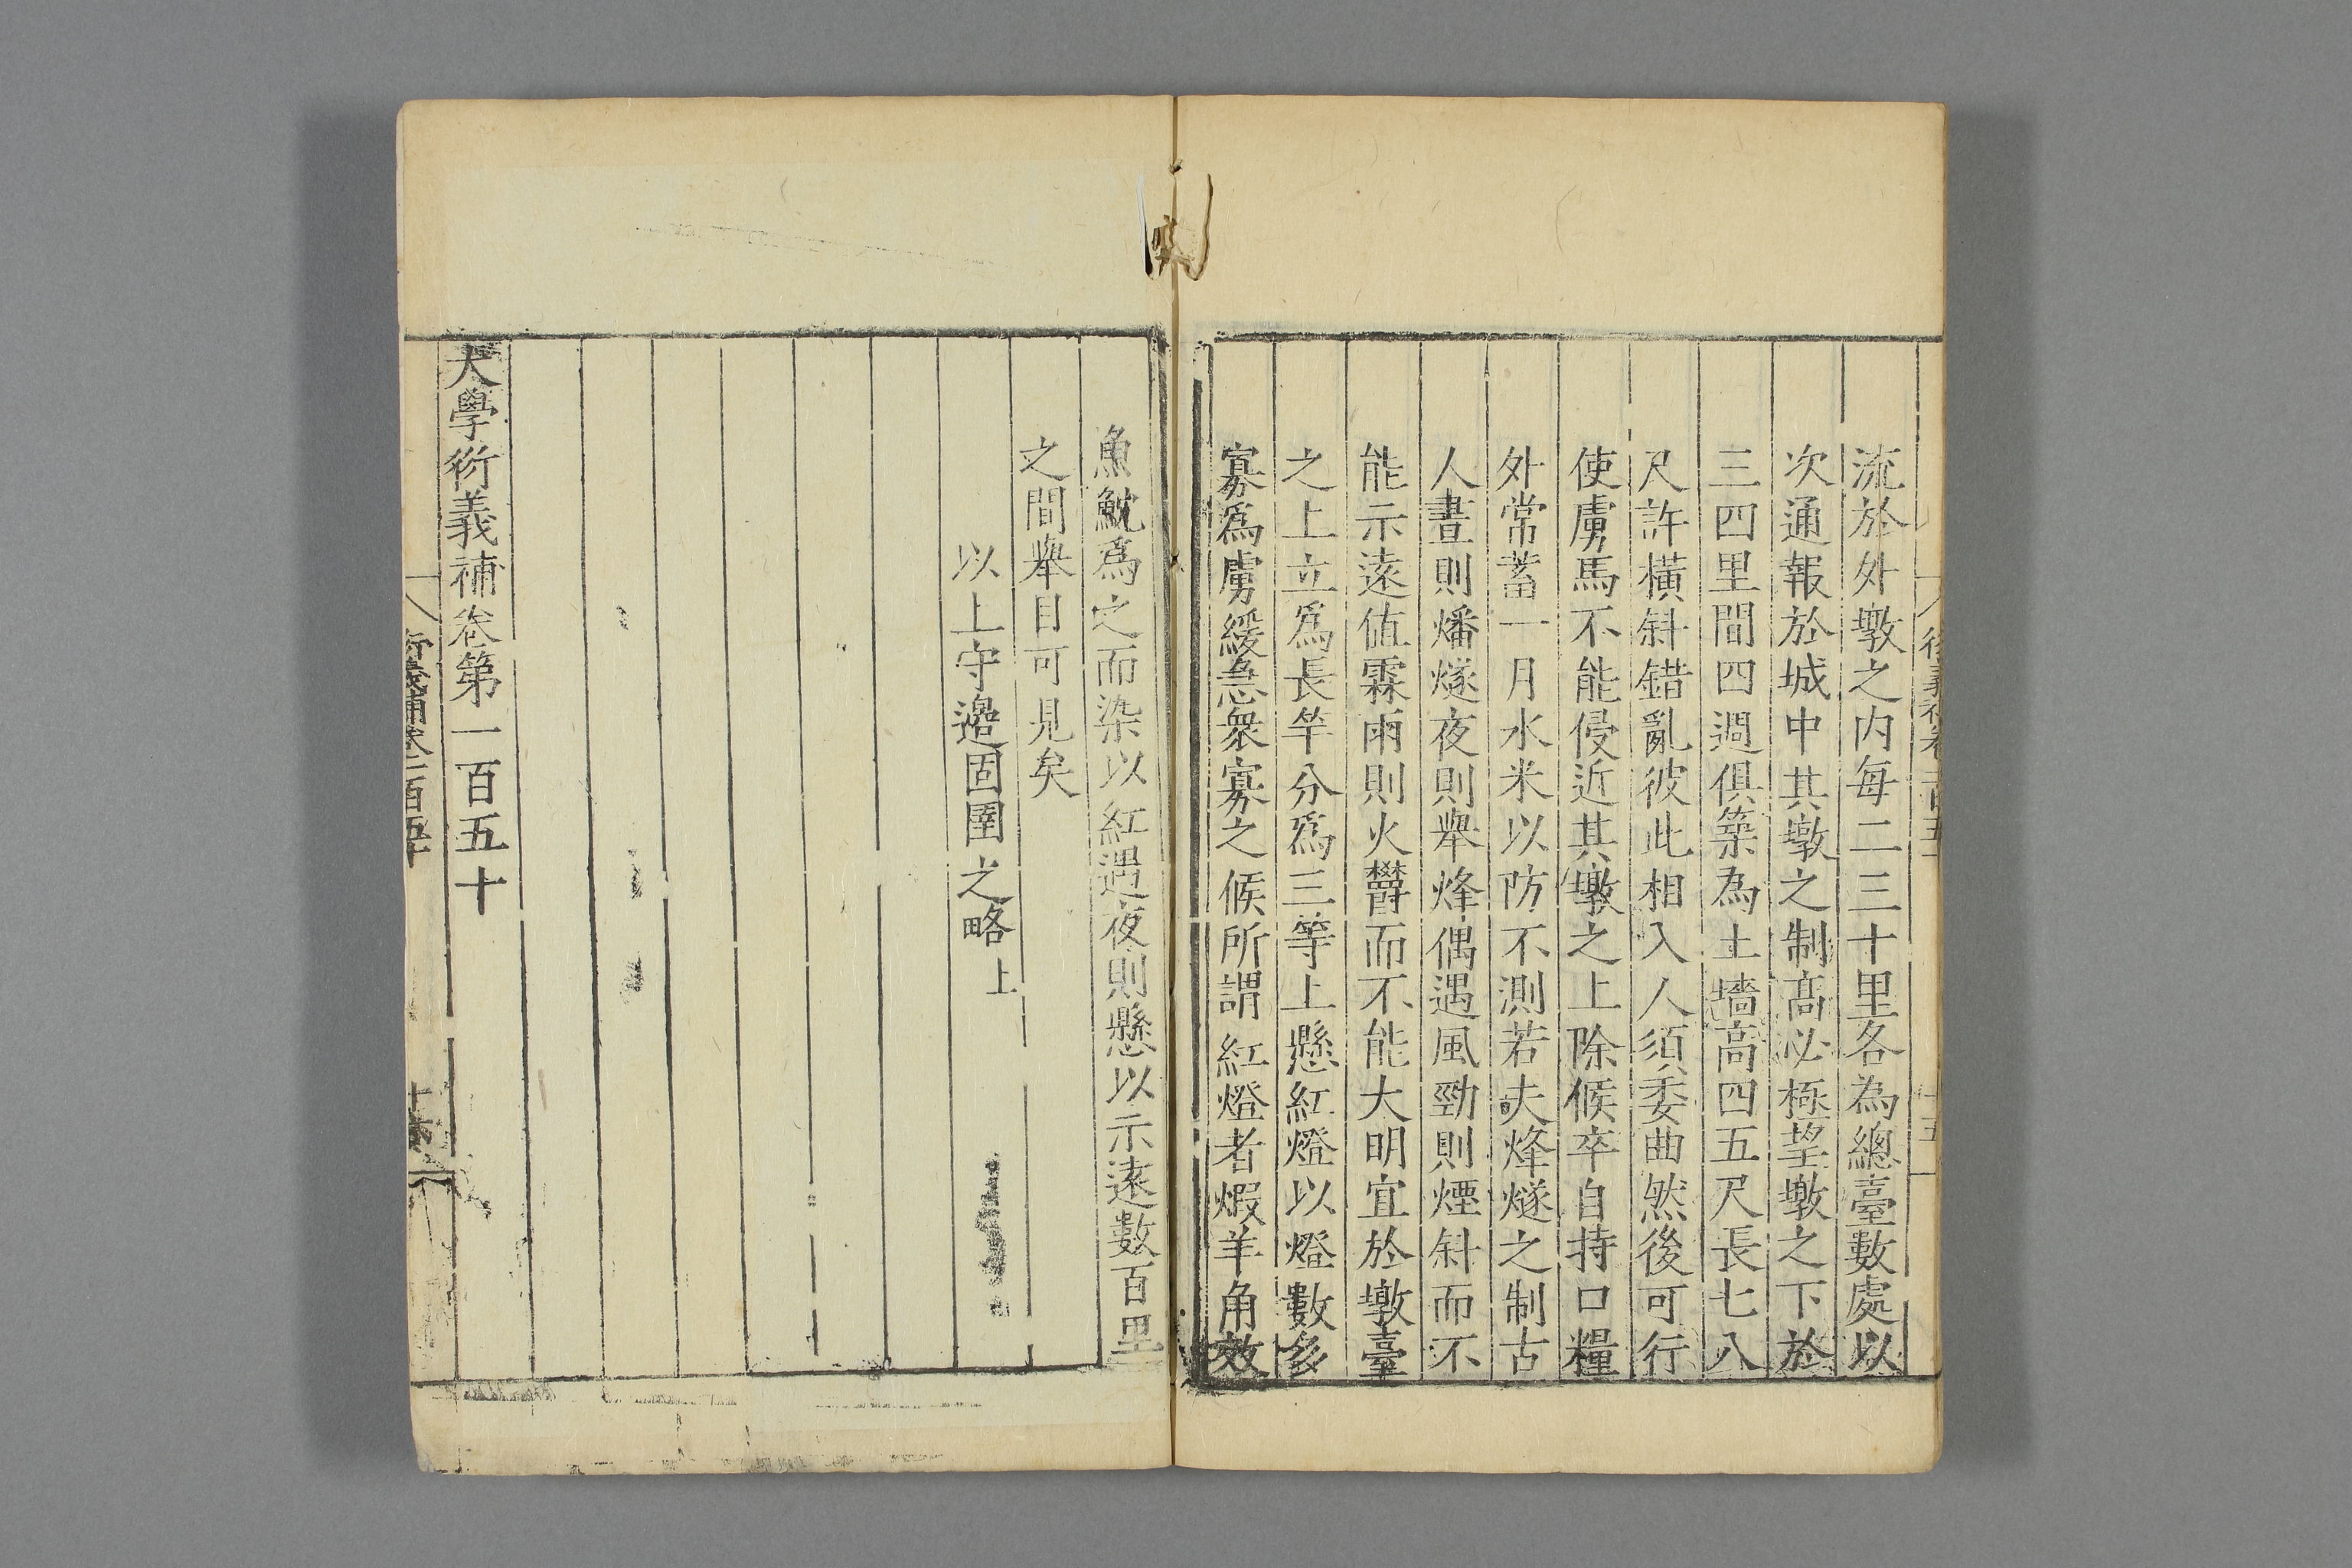 流於外墩之内每二三十里各為緫臺數處以
次通報於城中其墩之制髙必極望墩之下於
三四里間四週俱築為土墻高四五尺長七八
尺許橫斜錯亂彼此相入人須委曲然後可行
使虜馬不能侵近其墩之上除候卒自持口糧
外常蓄一月水米以防不測若夫烽燧之制古
人晝則燔燧夜則舉烽偶遇風勁則煙斜而不
能示遠值霖雨則火欝而不能大明宜於墩臺
之上立爲長竿分爲三等上懸紅燈以燈數多
寡爲虜緩急衆寡之候所謂紅燈者煆羊角效
魚魫爲之而染以紅遇夜則懸以示遠數百里
之間舉目可見矣
以上守邊固圉之略上
大學衍義補卷第一百五十
衍義補卷一百五十